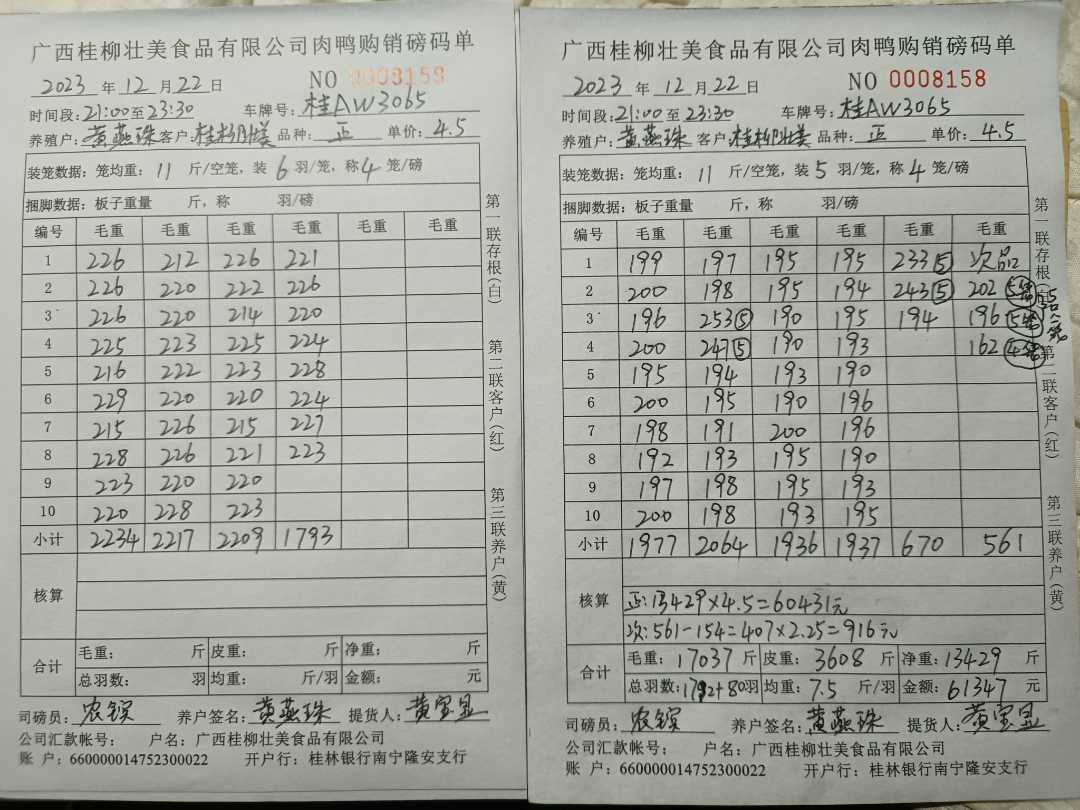 广西桂柳壮美食品有限公司肉鸭购销磅码单
2023 年 12 月 22 日 NO 0008159
时间段: 21:00 至 23:30 车牌号: 桂AW3065
养殖户: 黄燕珠 客户: 桂柳壮美 品种: 正 单价: 4.5
装笼数据: 笼均重: 11 斤/空笼, 装 6 羽/笼, 称 4 笼/磅
捆脚数据: 板子重量 斤, 称 羽/磅
编号 毛重 毛重 毛重 毛重 毛重 毛重
1 226 212 226 221
2 226 220 222 226
3 226 220 214 220
4 225 223 225 224
5 216 222 223 228
6 229 220 220 224
7 215 226 215 227
8 228 226 221 223
9 223 220 220
10 220 228 223
小计 2234 2217 2209 1793
核算
合计 毛重: 斤 皮重: 斤 净重: 斤
总羽数: 羽 均重: 斤/羽 金额: 元
司磅员: 农 养户签名: 黄燕珠 提货人: 黄宝
公司汇款帐号: 户名: 广西桂柳壮美食品有限公司
账 户: 660000014752300022 开户行: 桂林银行南宁隆安支行
第一联存根(白) 第二联客户(红) 第三联养户(黄)
广西桂柳壮美食品有限公司肉鸭购销磅码单
2023 年 12 月 22 日 NO 0008158
时间段: 21:00 至 23:30 车牌号: 桂AW3065
养殖户: 黄燕珠 客户: 桂柳壮美 品种: 正 单价: 4.5
装笼数据: 笼均重: 11 斤/空笼, 装 5 羽/笼, 称 4 笼/磅
捆脚数据: 板子重量 斤, 称 羽/磅
编号 毛重 毛重 毛重 毛重 毛重 毛重
1 199 197 195 195 233⑤ 次品
2 200 198 195 194 243⑤ 202 5笼
3 196 253⑤ 190 195 194 196 5笼
4 200 247⑤ 190 193 162 4笼
5 195 194 193 190
6 200 195 190 196
7 198 191 200 196
8 192 193 195 190
9 197 198 195 193
10 200 198 193 195
小计 1977 2064 1936 1937 670 561
核算 正: 13429×4.5=60431元
次: 561-154=407×2.25=916元
合计 毛重: 17037 斤 皮重: 3608 斤 净重: 13429 斤
总羽数: 1792+80羽 均重: 7.5 斤/羽 金额: 61347 元
司磅员: 农 养户签名: 黄燕珠 提货人: 黄宝
公司汇款帐号: 户名: 广西桂柳壮美食品有限公司
账 户: 660000014752300022 开户行: 桂林银行南宁隆安支行
第一联存根(白) 第二联客户(红) 第三联养户(黄)